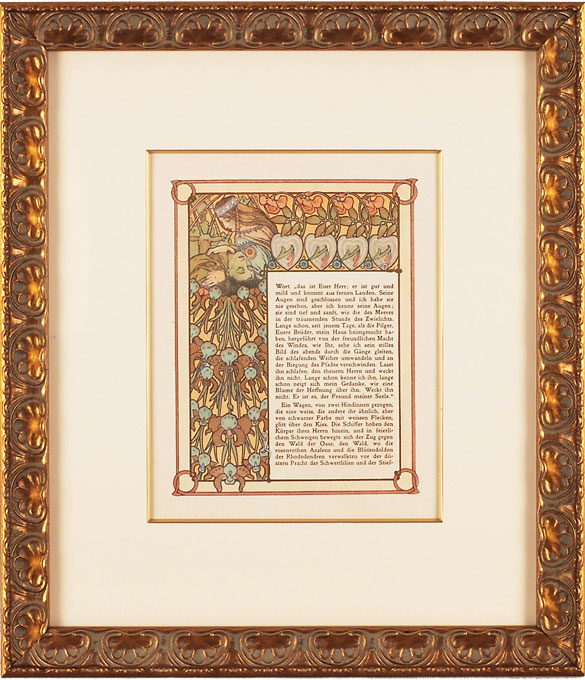 Wort, „das ist Euer Herr; er ist gut und
mild und kommt aus fernen Landen. Seine
Augen sind geschlossen und ich habe sie
nie gesehen, aber ich kenne seine Augen;
sie sind tief und sanft, wie die des Meeres
in der träumenden Stunde des Zwielichts.
Lange schon, seit jenem Tage, als die Pilger,
Eurer Brüder, mein Haus heimgesucht ha-
ben, hergeführt von der freundlichen Macht
des Windes, wie Ihr, sehe ich sein stilles
Bild des abends durch die Gänge gleiten,
die schlafenden Weiher umwandeln und an
der Biegung des Pfades verschwinden. Lasst
ihn schlafen, den theuren Herrn und weckt
ihn nicht. Lange schon kenne ich ihn, lange
schon neigt sich mein Gedanke, wie eine
Blume der Hoffnung über ihn. Weckt ihn
nicht. Er ist es, der Freund meiner Seele.“
Ein Wagen, von zwei Hindinnen gezogen,
die eine weiss, die andere ihr ähnlich, aber
von schwarzer Farbe mit weissen Flecken,
glitt über den Kies. Die Schiffer hoben den
Körper ihres Herrn hinein, und in feierli-
chem Schweigen bewegte sich der Zug gegen
den Wald der Oase, den Wald, wo die
rosenrothen Azaleen und die Blütendolden
der Rhododendren verwelkten vor der dü-
stern Pracht der Schwertlilien und der Stief-